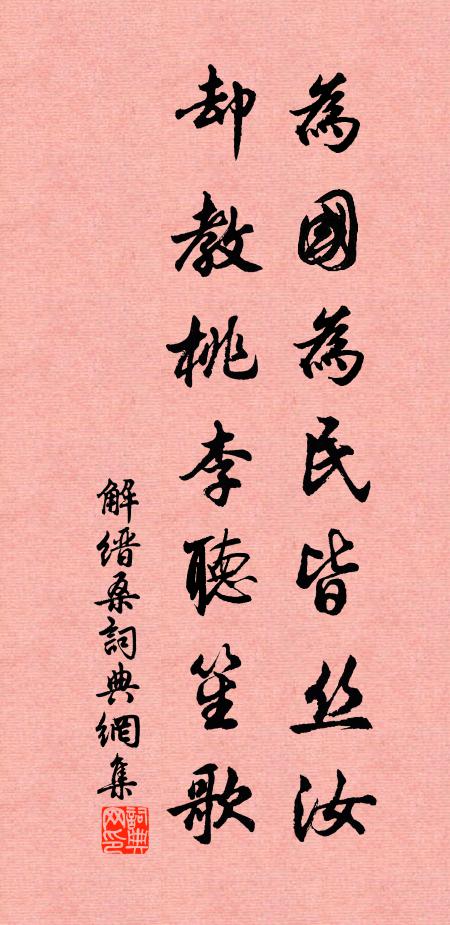 為國為民皆丝汝
却教桃李聽笙歌
解缙桑詞典網集
詞典网印